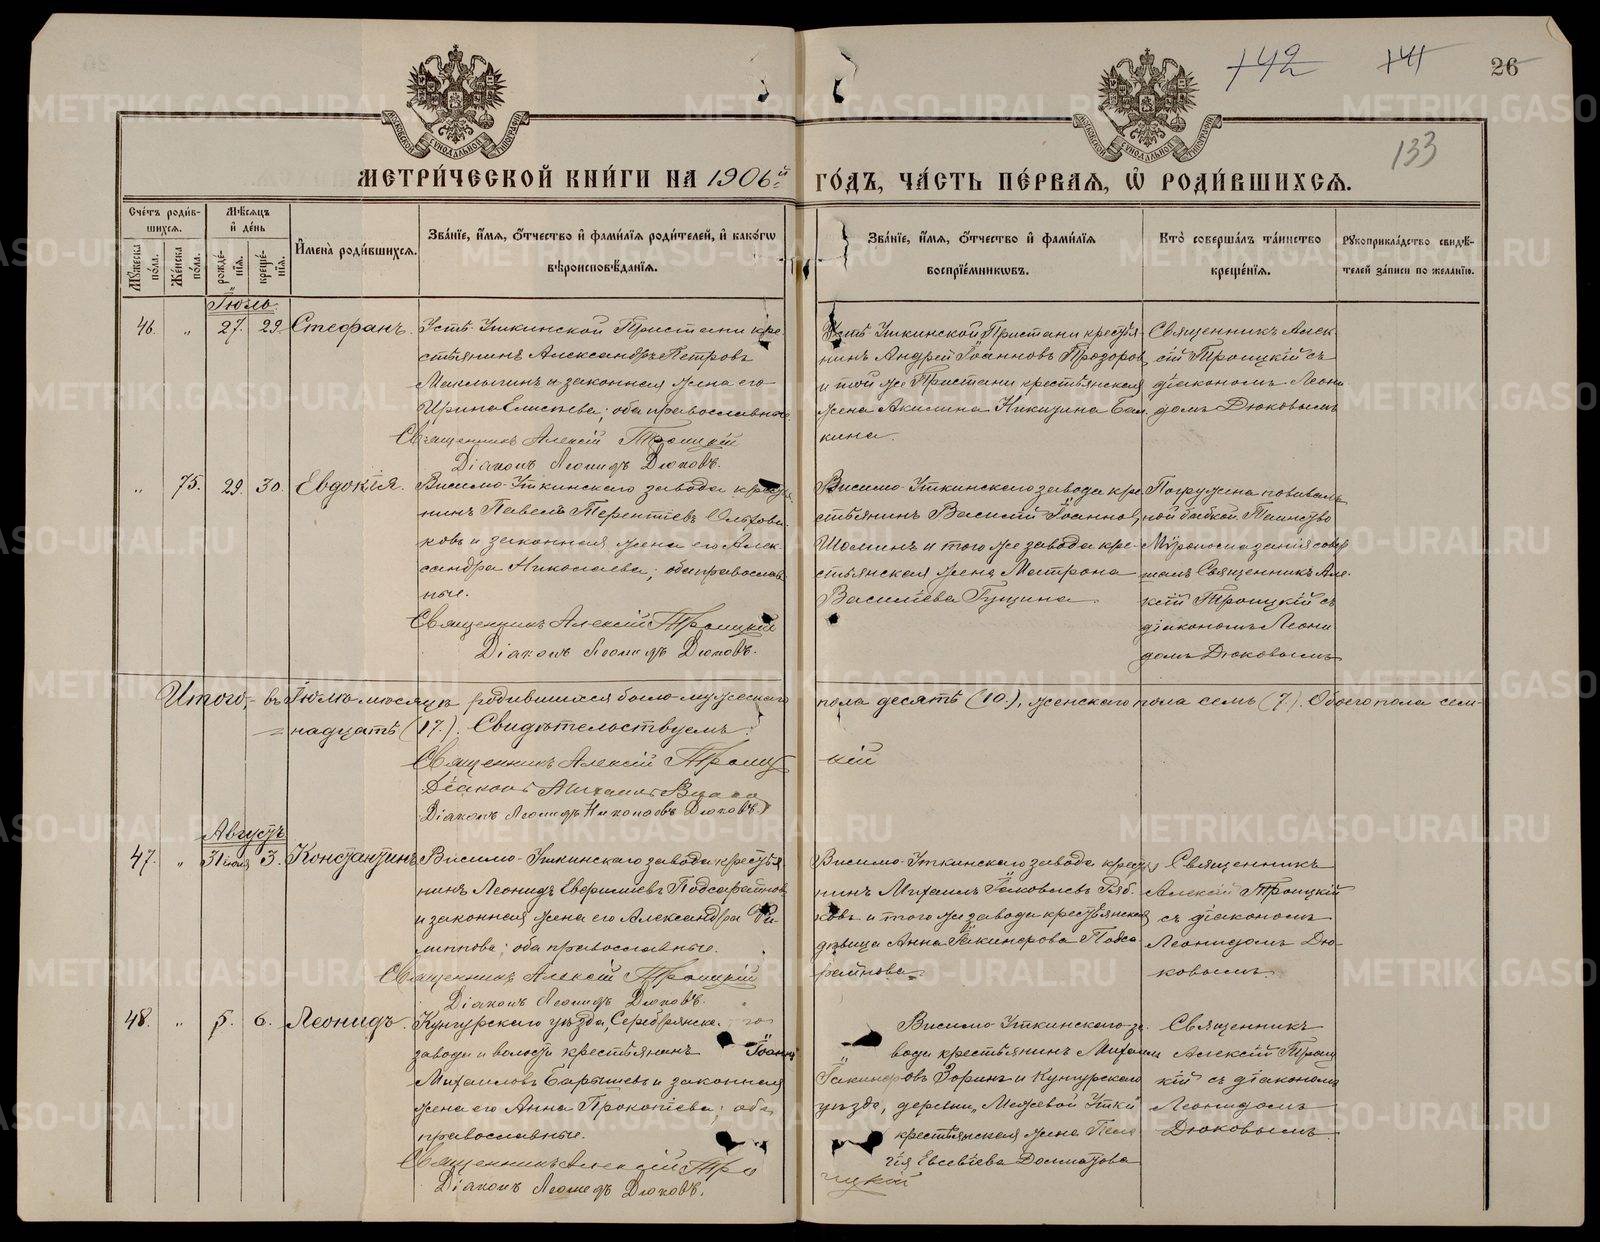 142 141 26
133
МОСКОВСКОЙ СѴНОДАЛЬНОЙ ТИПОГРАФІИ
МОСКОВСКОЙ СѴНОДАЛЬНОЙ ТИПОГРАФІИ
МЕТРИ́ЧЕСКОЙ КНИ́ГИ НА 1906й ГО́ДЪ, ЧА́СТЬ ПЕ́РВАѦ, Ѽ РОДИ́ВШИХСѦ.
Сче́тъ роди́в-
шихсѧ.
Мꙋжеска по́ла.
Же́нска по́ла.
Мѣ́сѧцъ
и҆ де́нь
рожде́-нїѧ.
креще́-нїѧ.
И҆мена̀ роди́вшихсѧ.
Зва́нїе, и҆́мѧ, ѻ҆́тчество и҆ фами́лїѧ роди́телей, и҆ како́гѡ
вѣроисповѣ́данїѧ.
Зва́нїе, и҆́мѧ, ѻ҆́тчество и҆ фами́лїѧ
воспрїе́мникѡвъ.
Кто̀ соверша́лъ та́инство
креще́нїѧ.
Рꙋкоприкла́дство свидѣ́-
телей за́писи по жела́нїю.
Іюль
46. „ 27. 29. Стефанъ.
Усть-Уткинской Пристани кре-
стьянинъ Александръ Петровъ
и законная жена его
Ирина Елисѣева; оба православные.
Священникъ Алексій Троицкій
Діаконъ Леонидъ Дюковъ.
Усть-Уткинской Пристани крестья-
нинъ Андрей Іоанновъ Прозоровъ
и той же Пристани крестьянская
жена Акилина Никитина Бал
кина.
Священникъ Алек-
сій Троицкій съ
діакономъ Леони
домъ Дюковымъ
„ 75. 29. 30. Евдокія.
Висимо-Уткинскаго завода кресть
нинъ Павелъ Терентіевъ
ковъ и законная жена его Алек-
сандра Николаева; оба православ-
ные.
Священникъ Алексій Троицкій
Діаконъ Леонидъ Дюковъ.
Висимо-Уткинскаго завода кре-
стьянинъ Василій Іоанновъ
Шоминъ и того же завода кре-
стьянская жена Матрона
Василіева Гущина.
Погружена повиваль
ной бабкой. Таинство
Мѵропомазанія совер
шалъ Священникъ Але-
ксій Троицкій съ
діакономъ Леони
домъ Дюковымъ
Итого, - въ Іюлѣ мѣсяцѣ родившихся было мужескаго пола десять (10.), женскаго пола семь (7.). Обоего пола сем-
надцать (17.). Свидѣтельствуемъ:
Священникъ Алексій Троиц кій
Діаконъ Михаилъ
Діаконъ Леонидъ Николаевъ Дюковъ.
Августъ
47. „ 31 іюля 3. Константинъ
Висимо-Уткинскаго завода крестья
нинъ Леонидъ Подсарайновъ
и законная жена его Александра Фи
липпова; оба православные.
Священникъ Алексій Троицкій
Діаконъ Леонидъ Дюковъ.
Висимо-Уткинскаго завода кресть
нинъ Михаилъ Іаковлевъ Ряб-
ковъ и того же завода крестьянская
дѣвица Анна Іакинѳова Подса-
райнова.
Священникъ
Алексій Троицкій
съ діакономъ
Леонидомъ Дю-
ковымъ.
48. „ 5. 6. Леонидъ.
Кунгурскаго уѣзда, Серебрянска- го
завода и волости крестьянинъ Іоаннъ
Михаиловъ Барышевъ и законная
жена его Анна Прокопіева; оба
православные.
Священникъ Алексій Тро ицкій
Діаконъ Леонидъ Дюковъ.
Висимо-Уткинскаго за-
вода крестьянинъ Михаилъ
Іакинѳовъ Зоринъ и Кунгурскаго
уѣзда, деревни „Межевой Утки"
крестьянская жена Пела
гія Евсевіева Долматова
Священникъ
Алексій Троиц
кій съ діакономъ
Леонидомъ
Дюковымъ.
METRIKI.GASO-URAL.RU